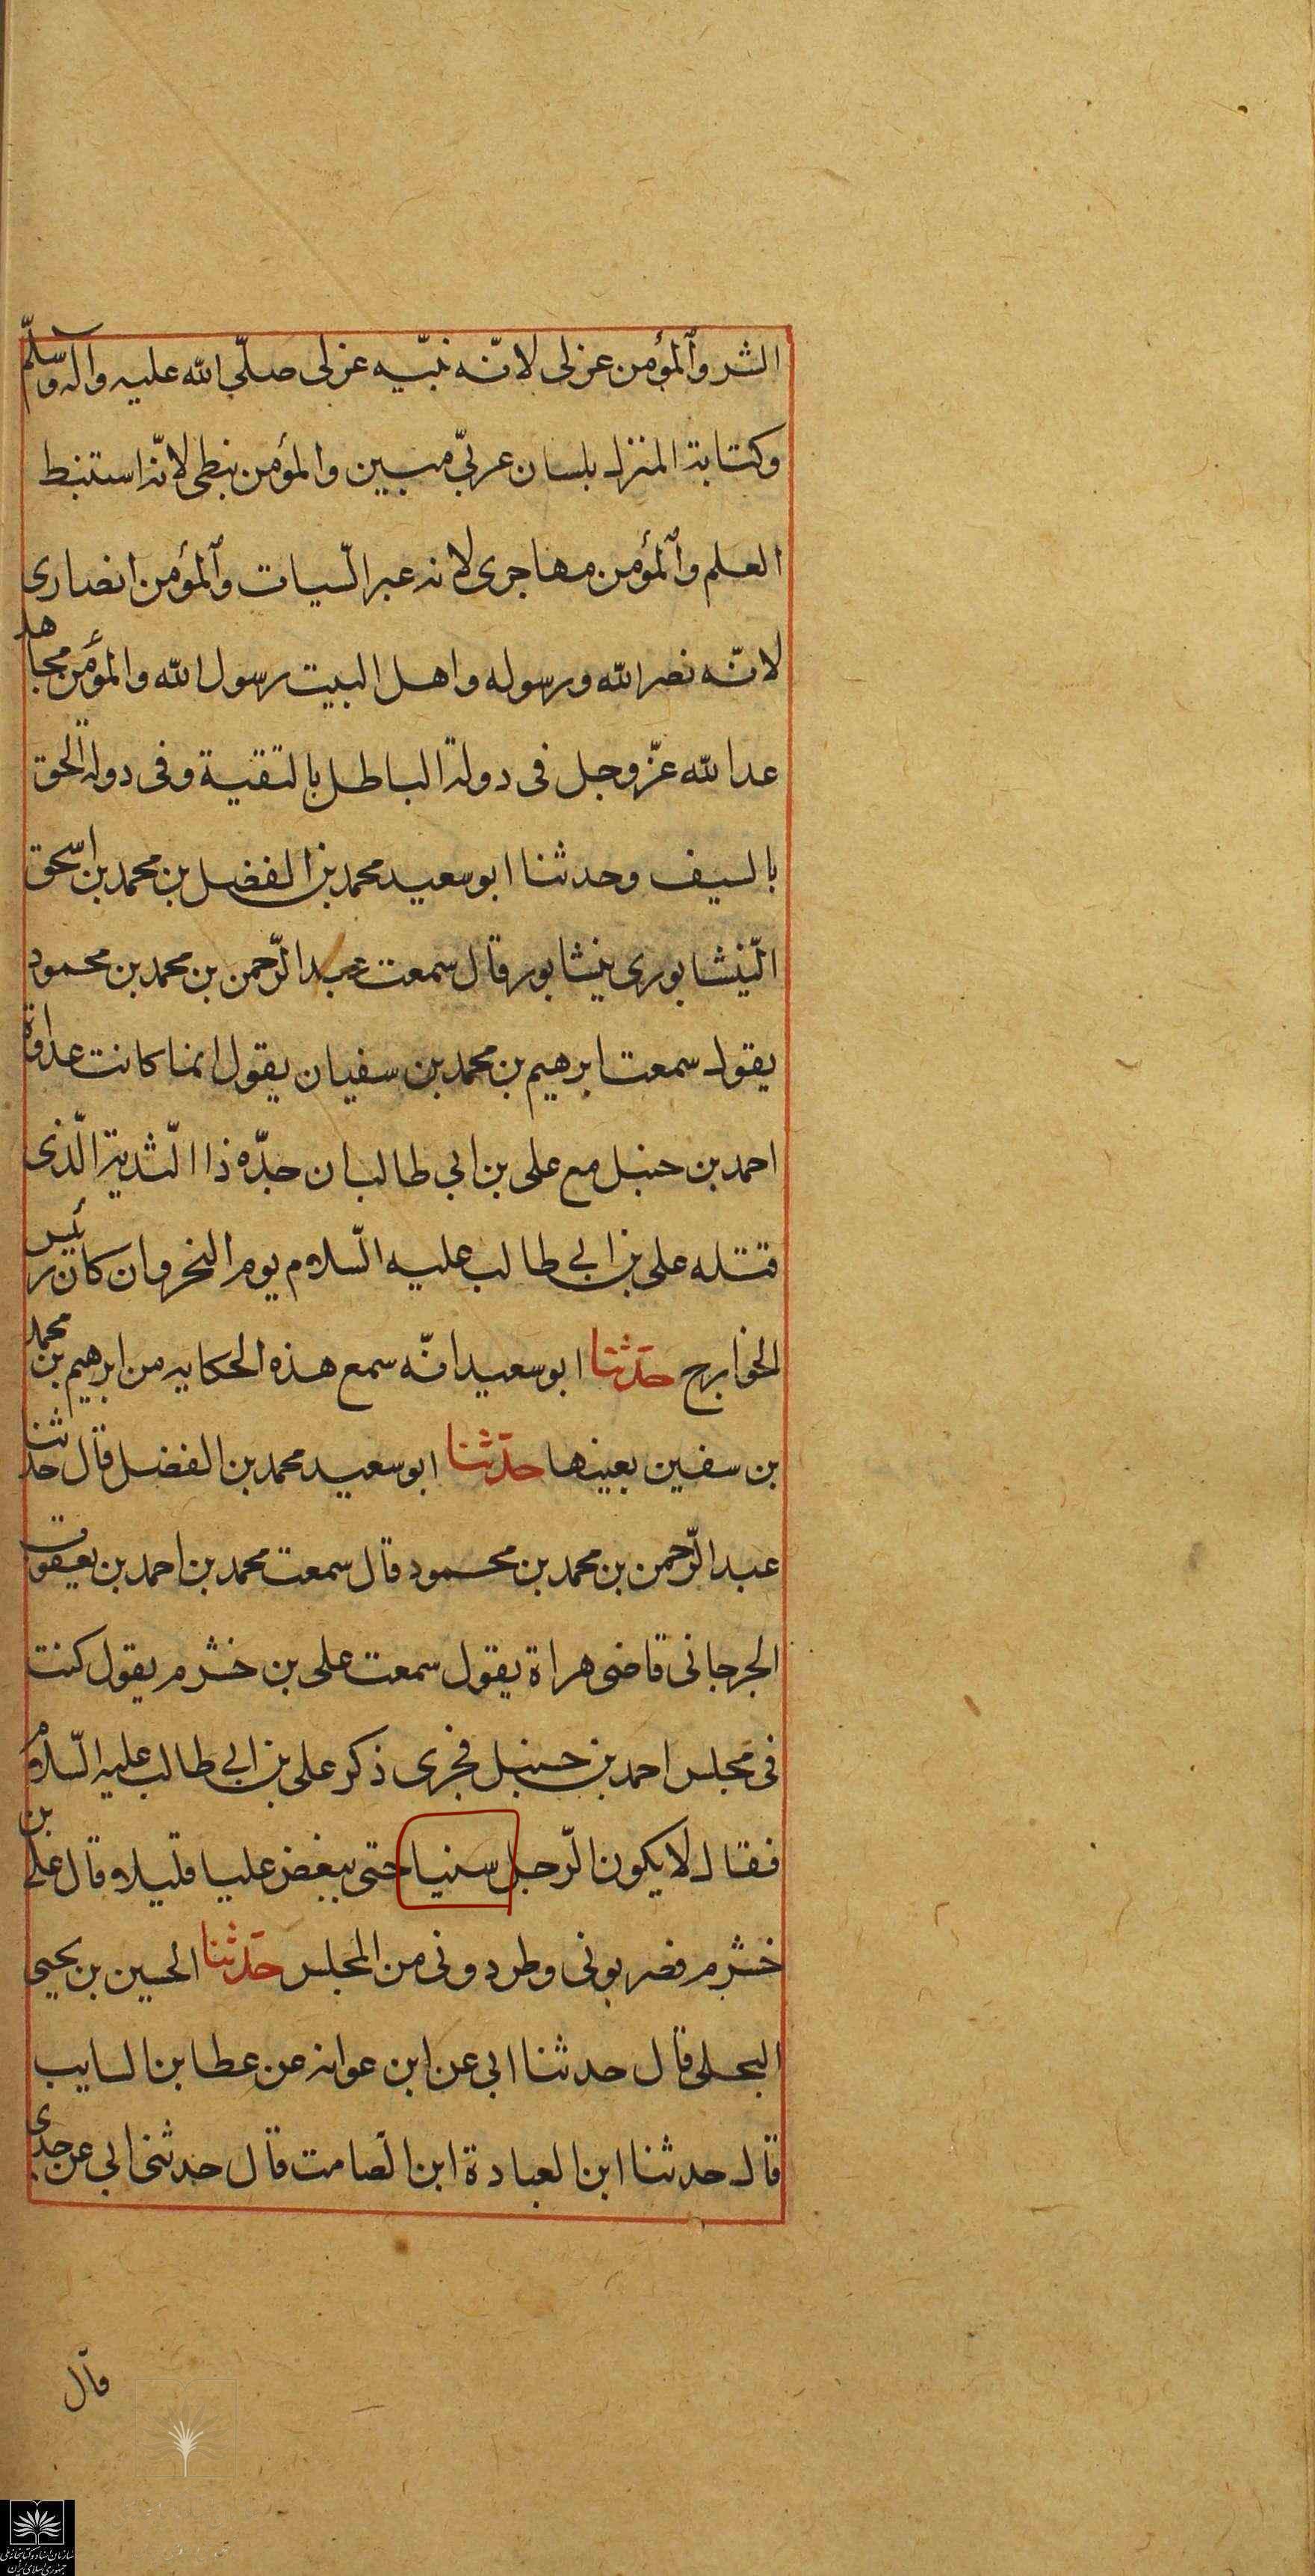 الشر والمؤمن عزلى لانّه نبيّه عزلى صلّى الله عليه واله وسلّم
وكتابة المنزل بلسان عربّي مبين والمؤمن نبطى لانّه استنبط
العلم والمؤمن مهاجرى لانه عبر السّيات والمؤمن انصارى
لانّه نصر الله ورسوله واهل البيت رسول الله والمؤمن مجاهد
عدا لله عزّ وجل فى دولة الباطل بالتقية وفى دولة الحق
بالسيف وحدثنا ابو سعيد محمد بن الفضل بن محمد بن اسحق
النّيشابورى بنيشابور قال سمعت عبد الرّحمن بن محمد بن محمود
يقول سمعت ابرهيم بن محمد بن سفيان يقول انما كانت عداوة
احمد بن حنبل مع على بن ابي طالب ان جدّه ذا الثّدية الّذى
قتله على بن ابي طالب عليه السّلام يوم النحروان كان رئيس
الخوارج حدّثنا ابو سعيد انّه سمع هذه الحكايه من ابرهيم بن محمد
بن سفين بعينها حدّثنا ابو سعيد محمد بن الفضل قال حدثنا
عبد الرّحمن بن محمد بن محمود قال سمعت محمد بن احمد بن يعقوب
الجرجانى قاضى هراة يقول سمعت على بن خشرم يقول كنت
فى مجلس احمد بن حنبل فجرى ذكر على بن ابي طالب عليه السّلام
فقال لا يكون الرّجل سنيا حتى يبغض عليا قليلا قال على بن
خشرم فضربونى وطردونى من المجلس حدّثنا الحسين بن يحيى
البجلى قال حدثنا ابى عن ابن عوانه عن عطا بن السايب
قال حدثنا ابن العبادة ابن الصّامت قال حدثنى ابي عن جدى
قال
سازمان اسناد و کتابخانه ملی
جمهوری اسلامی ایران